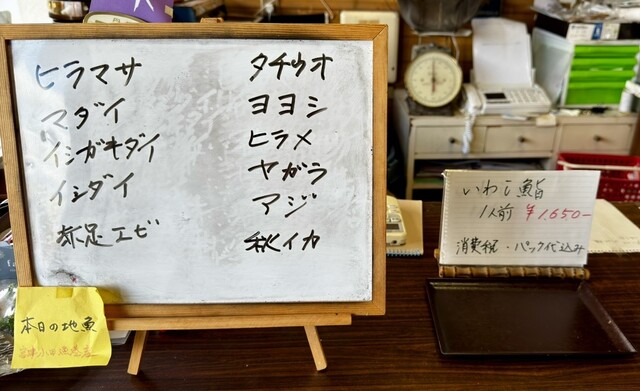 ヒラマサ
マダイ
イシガキダイ
イシダイ
赤足エビ
タチウオ
ヨヨシ
ヒラメ
ヤガラ
アジ
秋イカ
本日の地魚
いわし鮨
1人前 ¥1,650-
消費税・パック代込み